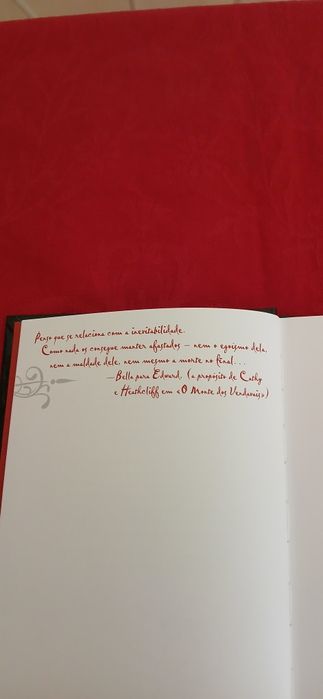 Penso que se relaciona com a inevitabilidade.
Como nada os consegue manter afastados – nem o egoísmo dela,
nem a maldade dele, nem mesmo a morte no final...
—Bella para Edward, (a propósito de Cathy
e Heathcliff em «O Monte dos Vendavais»)